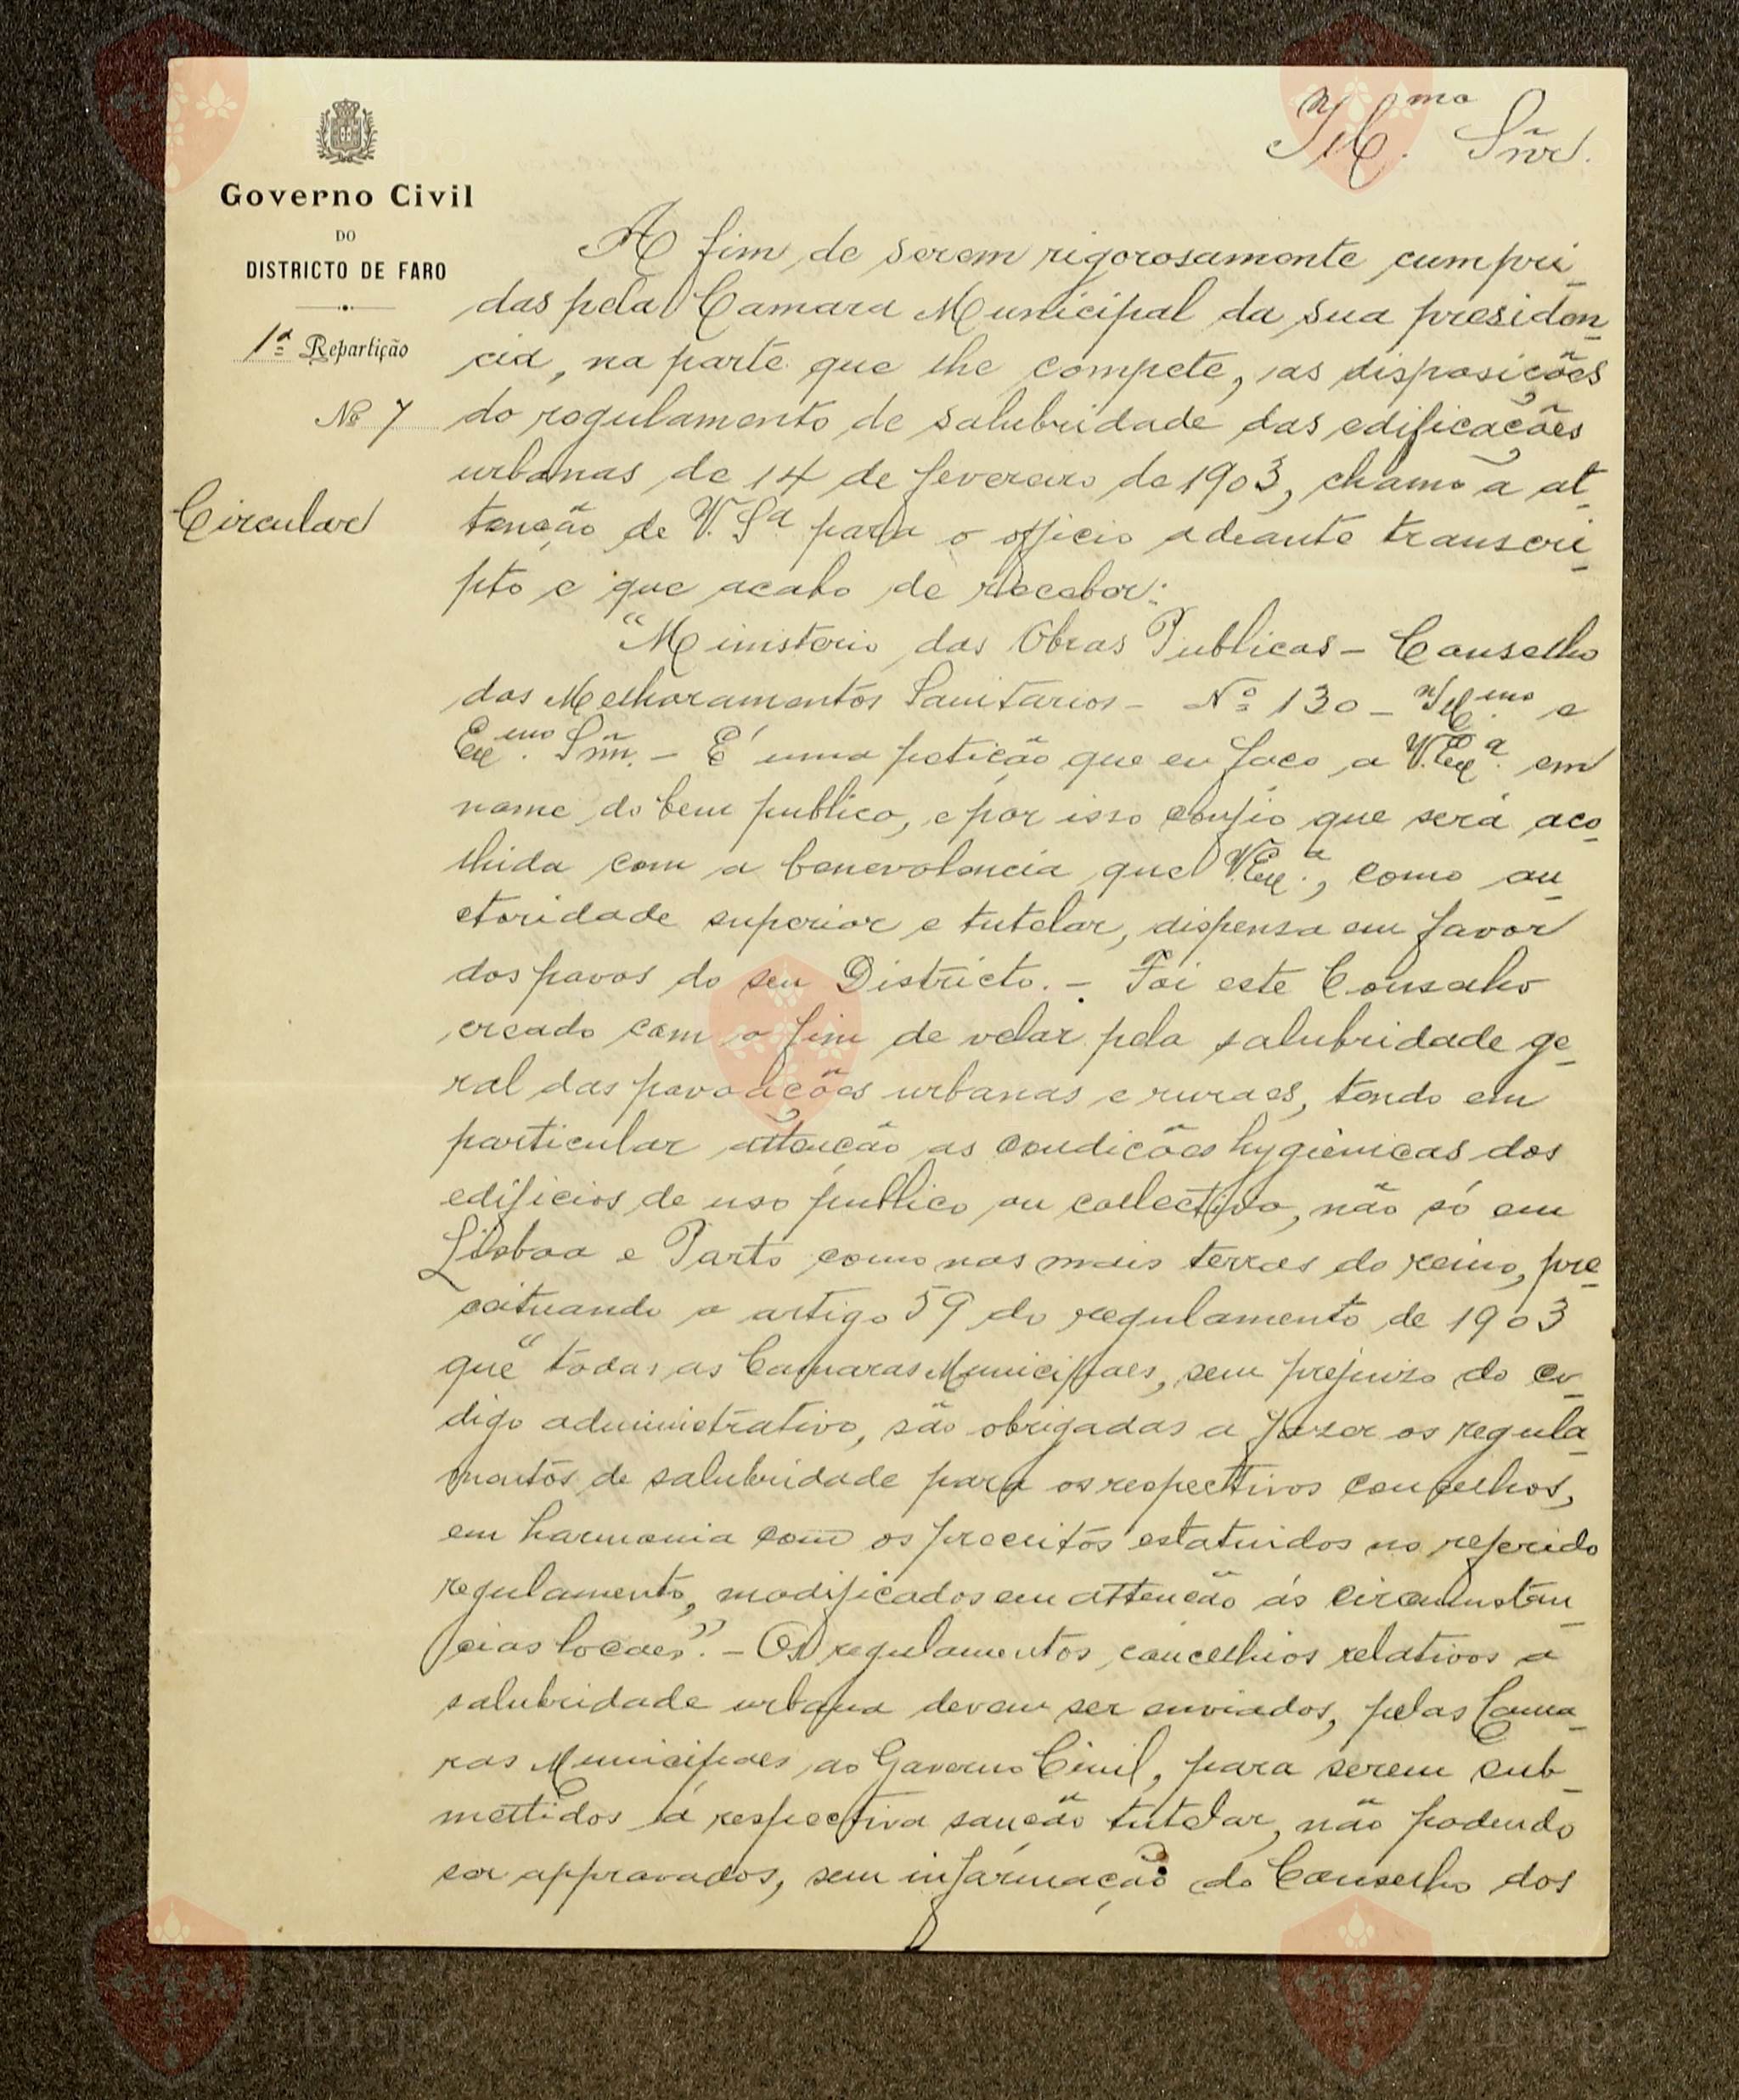 Ill.mo Sñr.
Governo Civil
DO
DISTRICTO DE FARO
1ª Repartição
Nº 7
Circular
A fim de serem rigorosamente cumpri-
das pela Camara Municipal da sua presiden-
cia, na parte que lhe compete, as disposições
do regulamento de salubridade das edificações
urbanas de 14 de fevereiro de 1903, chamo a at-
tenção de V. Sª para o officio adeante transcri-
pto e que acabo de receber:
"Ministerio das Obras Publicas - Conselho
dos Melhoramentos Sanitarios - Nº 130 - Ill.mo e
Ex.mo Sñr. - É uma petição que eu faço a V. Ex.ª em
nome do bem publico, e por isso confio que será aco-
lhida com a benevolencia que V. Ex.ª, como au-
ctoridade superior e tutelar, dispensa em favor
dos povos do seu Districto. - Foi este Conselho
creado com o fim de velar pela salubridade ge-
ral das povoações urbanas e ruraes, tendo em
particular attenção as condições hygienicas dos
edificios de uso publico ou collectivo, não só em
Lisboa e Porto como nas mais terras do reino, pre-
ceituando o artigo 59 do regulamento de 1903
que "todas as Camaras Municipaes, sem prejuizo do co-
digo administrativo, são obrigadas a fazer os regula-
mentos de salubridade para os respectivos concelhos,
em harmonia com os preceitos estatuidos no referido
regulamento, modificados em attenção ás circumstan-
cias locaes". - Os regulamentos concelhios relativos a
salubridade urbana devem ser enviados, pelas Cama-
ras Municipaes ao Governo Civil, para serem sub-
mettidos á respectiva sancção tutelar, não podendo
ser approvados, sem informação do Conselho dos
Vila
do Bispo
Vila
do Bispo